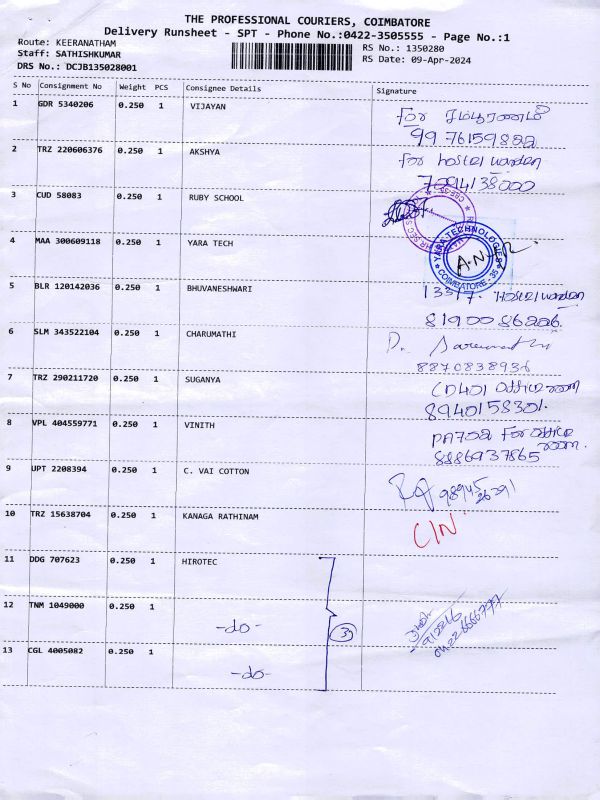 THE PROFESSIONAL COURIERS, COIMBATORE
Delivery Runsheet - SPT - Phone No.:0422-3505555 - Page No.:1
Route: KEERANATHAM
Staff: SATHISHKUMAR
DRS No.: DCJB135028001
RS No.: 1350280
RS Date: 09-Apr-2024
S No Consignment No Weight PCS Consignee Details Signature
1 GDR 5340206 0.250 1 VIJAYAN
for
9976159822
2 TRZ 220606376 0.250 1 AKSHYA
for hostel warden
7094138000
3 CUD 58083 0.250 1 RUBY SCHOOL
4 MAA 300609118 0.250 1 YARA TECH
YARA TECHNOLOGIES
COIMBATORE - 35
5 BLR 120142036 0.250 1 BHUVANESHWARI
13317. Hostel warden
8190086226.
6 SLM 343522104 0.250 1 CHARUMATHI
8870838936
7 TRZ 290211720 0.250 1 SUGANYA
CD401 office room
8940158301.
8 VPL 404559771 0.250 1 VINITH
PA702 For office
room.
8886937865
9 UPT 2208394 0.250 1 C. VAI COTTON
98945
26391
10 TRZ 15638704 0.250 1 KANAGA RATHINAM
C/N
11 DDG 707623 0.250 1 HIROTEC
12 TNM 1049000 0.250 1
-do-
3
13 CGL 4005082 0.250 1
-do-